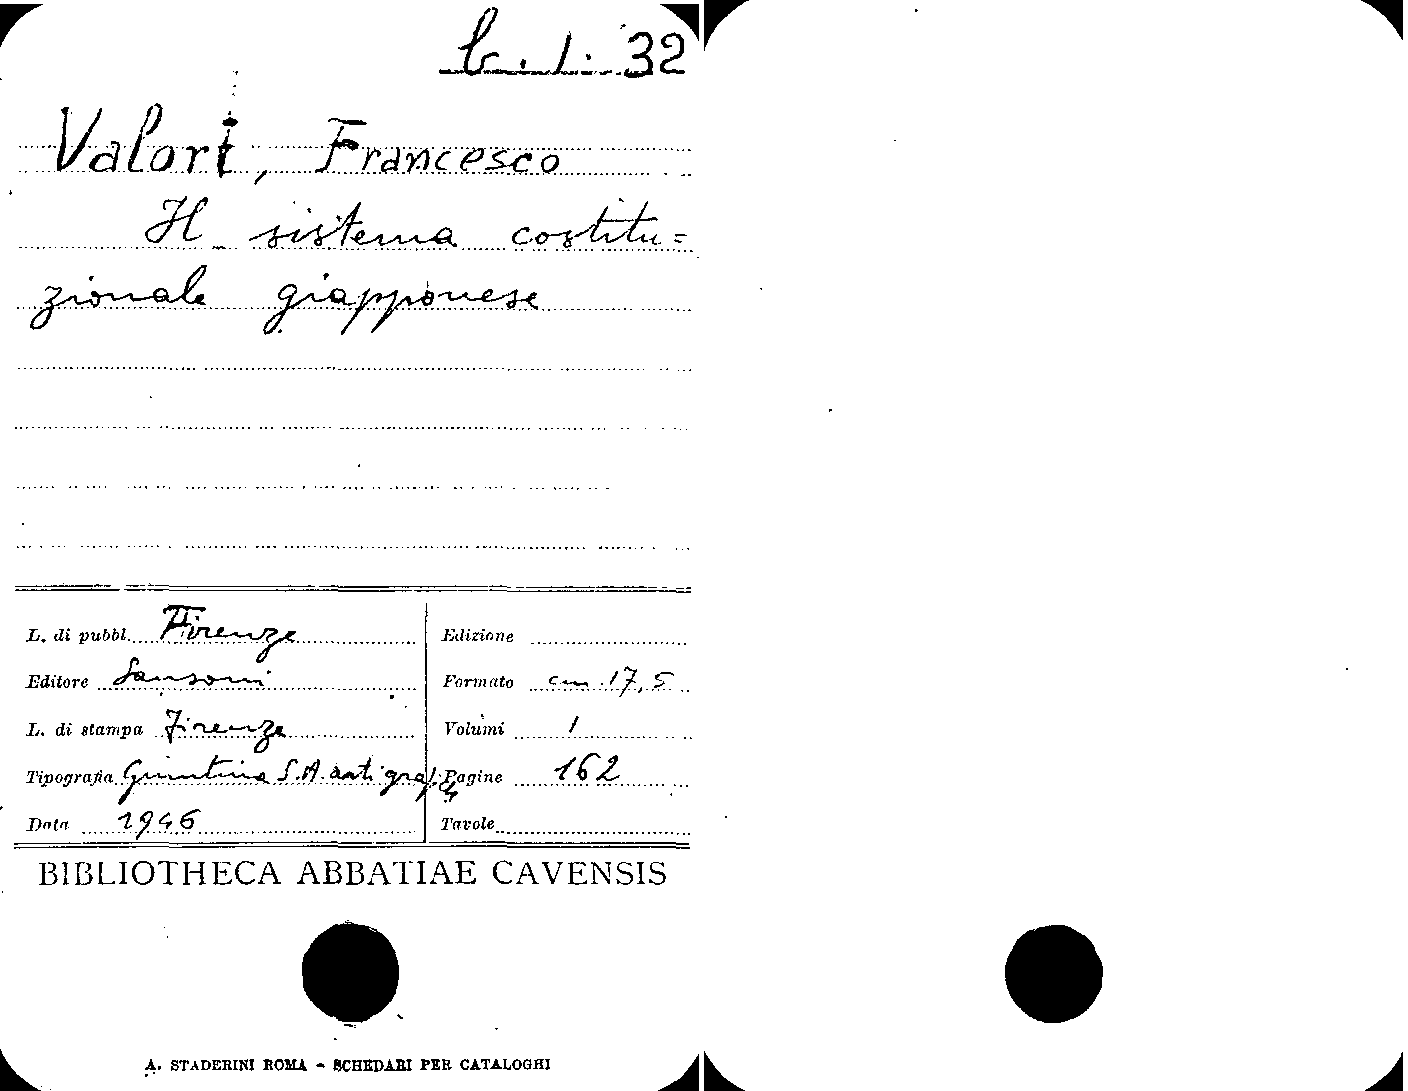 b. 1. 32
Valori, Francesco
Il sistema costitu=
zionale giapponese
L. di pubbl. Firenze
Editore Sansoni
L. di stampa Firenze
Tipografia Giuntina S.A. arti graf.
Data 1946
Edizione
Formato cm 17,5
Volumi 1
Pagine 162
Tavole
BIBLIOTHECA ABBATIAE CAVENSIS
A. STADERINI ROMA - SCHEDARI PER CATALOGHI